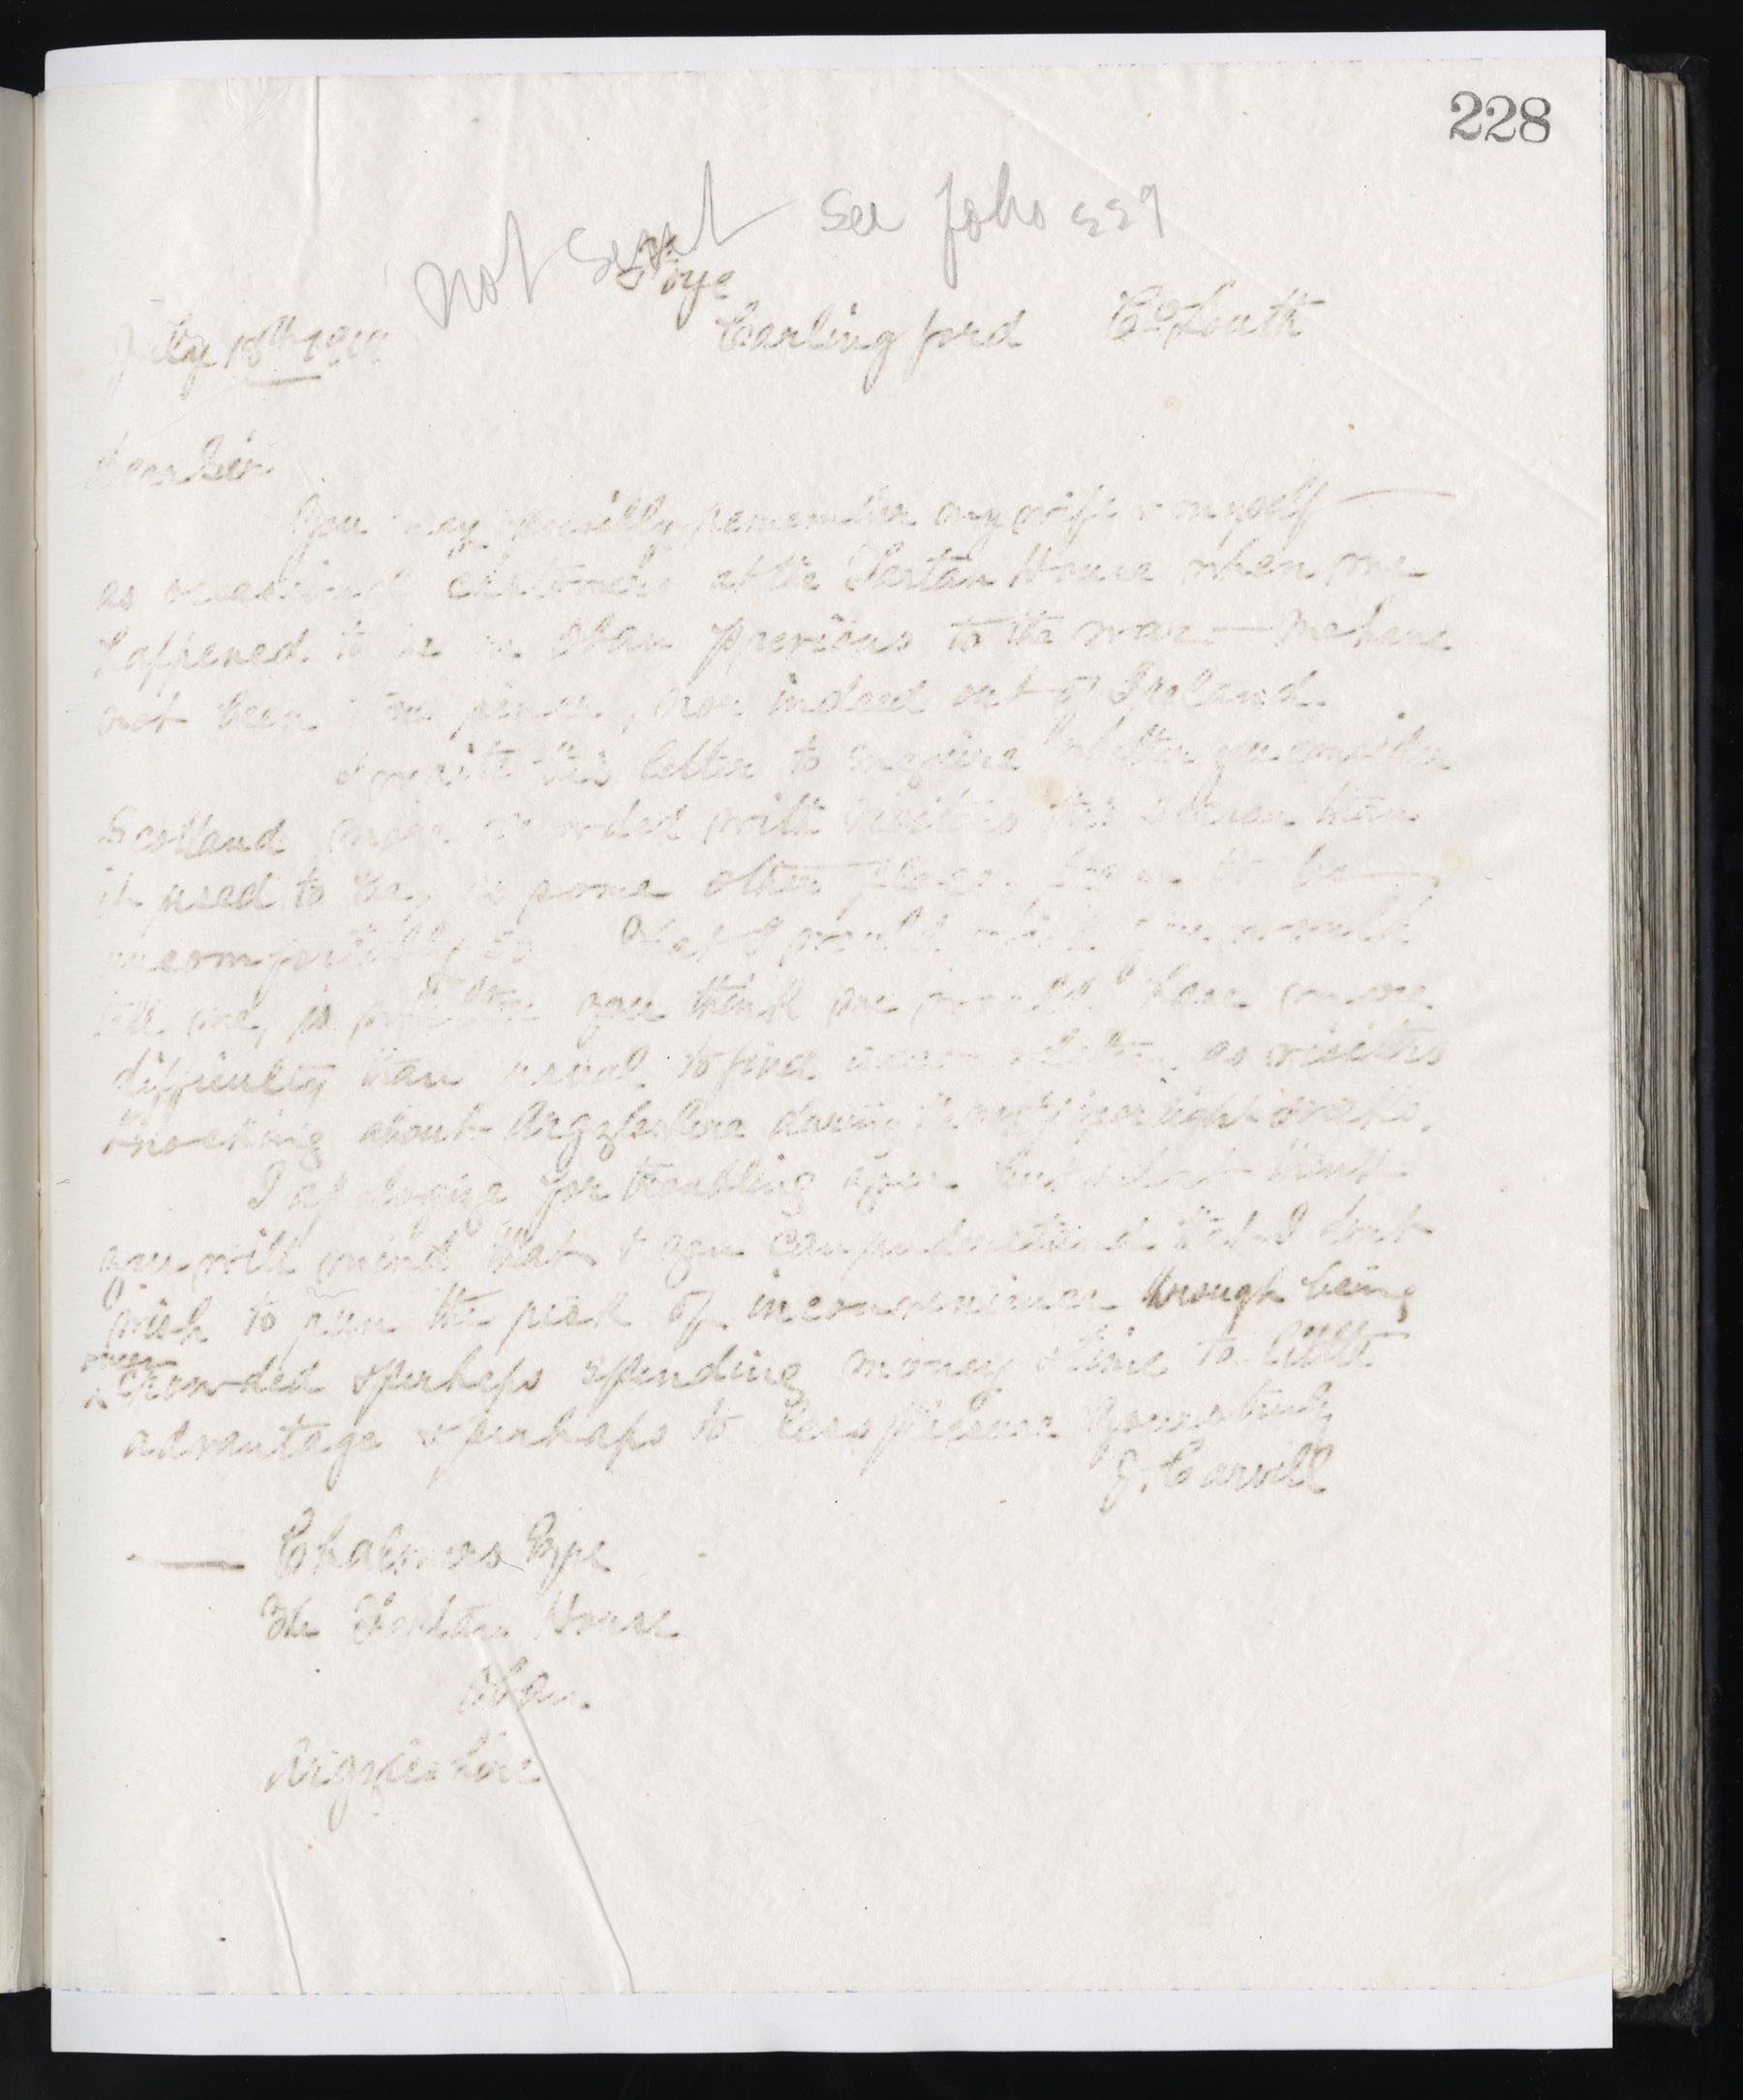 228
Not Sent See folio 229
Foye
July 18th 19 Carlingford Co Louth
Dear Sir
You may possibly remember my wife & myself
as occasional customers at the Tartan House when we
happened to be in Oban previous to the war — We have
not been there since, nor indeed out of Ireland.
I write this letter to inquire whether you consider
Scotland more crowded with visitors this season than
it used to be, as some other places
uncomfortably so. What I would you would
tell me, is whether you think we would have more
difficulty than usual to find as visitors
knocking about Argyleshire during the next or eight weeks.
I apologize for troubling you but I dont think
you will mind that & you can understand that I dont
wish to run the risk of inconvenience through being
over
crowded & perhaps spending money & time to little
advantage & perhaps to less pleasure Yours truly
J. Carvill
Chalmers Pye
The Tartan House
Oban
Argyleshire